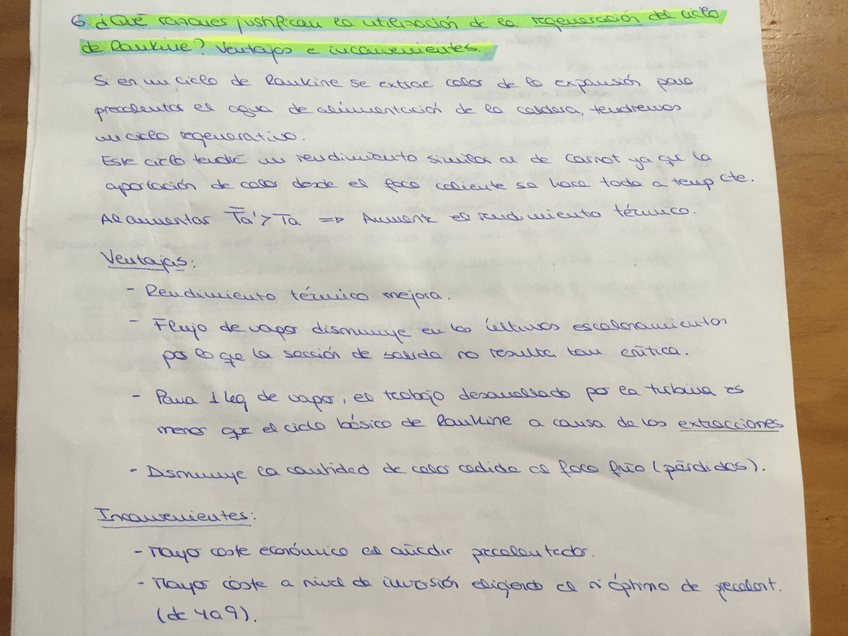 6. ¿Qué razones justifican la utilización de la regeneración del ciclo
de Rankine? Ventajas e inconvenientes.
Si en un ciclo de Rankine se extrae calor de la expansión para
precalentar el agua de alimentación de la caldera, tendremos
un ciclo regenerativo.
Este ciclo tendrá un rendimiento similar al de Carnot ya que la
aportación de calor desde el foco caliente se hace toda a temp cte.
Al aumentar Ta' > Ta => Aumenta el rendimiento térmico.
Ventajas:
- Rendimiento térmico mejora.
- Flujo de vapor disminuye en los últimos escalonamientos
por lo que la sección de salida no resulta tan crítica.
- Para 1 kg de vapor, el trabajo desarrollado por la turbina es
menor que el ciclo básico de Rankine a causa de las extracciones
- Disminuye la cantidad de calor cedida al foco frío (pérdidas).
Inconvenientes:
- Mayor coste económico al añadir precalentador.
- Mayor coste a nivel de inversión eligiendo el nº óptimo de precalent.
(de 4 a 9).